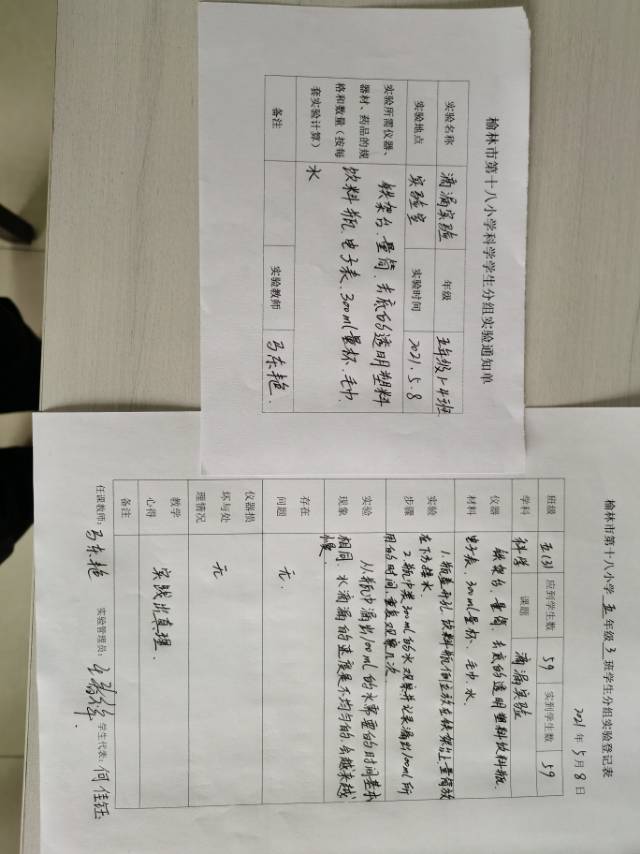 榆林市第十八小学科学学生分组实验通知单
实验名称 滴漏实验 年级 五年级1-4班
实验地点 实验室 实验时间 2021.5.8
实验所需仪器、器材、药品的规格和数量(按每套实验计算)
铁架台、量筒、去底的透明塑料
饮料瓶、电子表、300ml量杯、毛巾、
水
备注 实验教师 马东艳.
榆林市第十八小学五年级3班学生分组实验登记表
2021年5月8日
班级 五(3) 应到学生数 59 实到学生数 59
学科 科学 课题 滴漏实验
仪器材料
铁架台、量筒、去底的透明塑料饮料瓶、
电子表、300ml量杯、毛巾、水.
实验步骤
1.瓶盖开孔,饮料瓶倒立放在铁架台上,量筒放
在下方接水.
2.瓶中装300ml的水观察并记录漏出100ml所
用的时间,重复观察几次
实验现象
从瓶中漏出100ml的水需要的时间基本
相同,水滴漏的速度是不均匀的,会越来越
慢.
存在问题 无.
仪器损坏与处理情况 无
教学心得 实践出真理.
备注
任课教师:马东艳 实验管理员: 学生代表:何佳钰